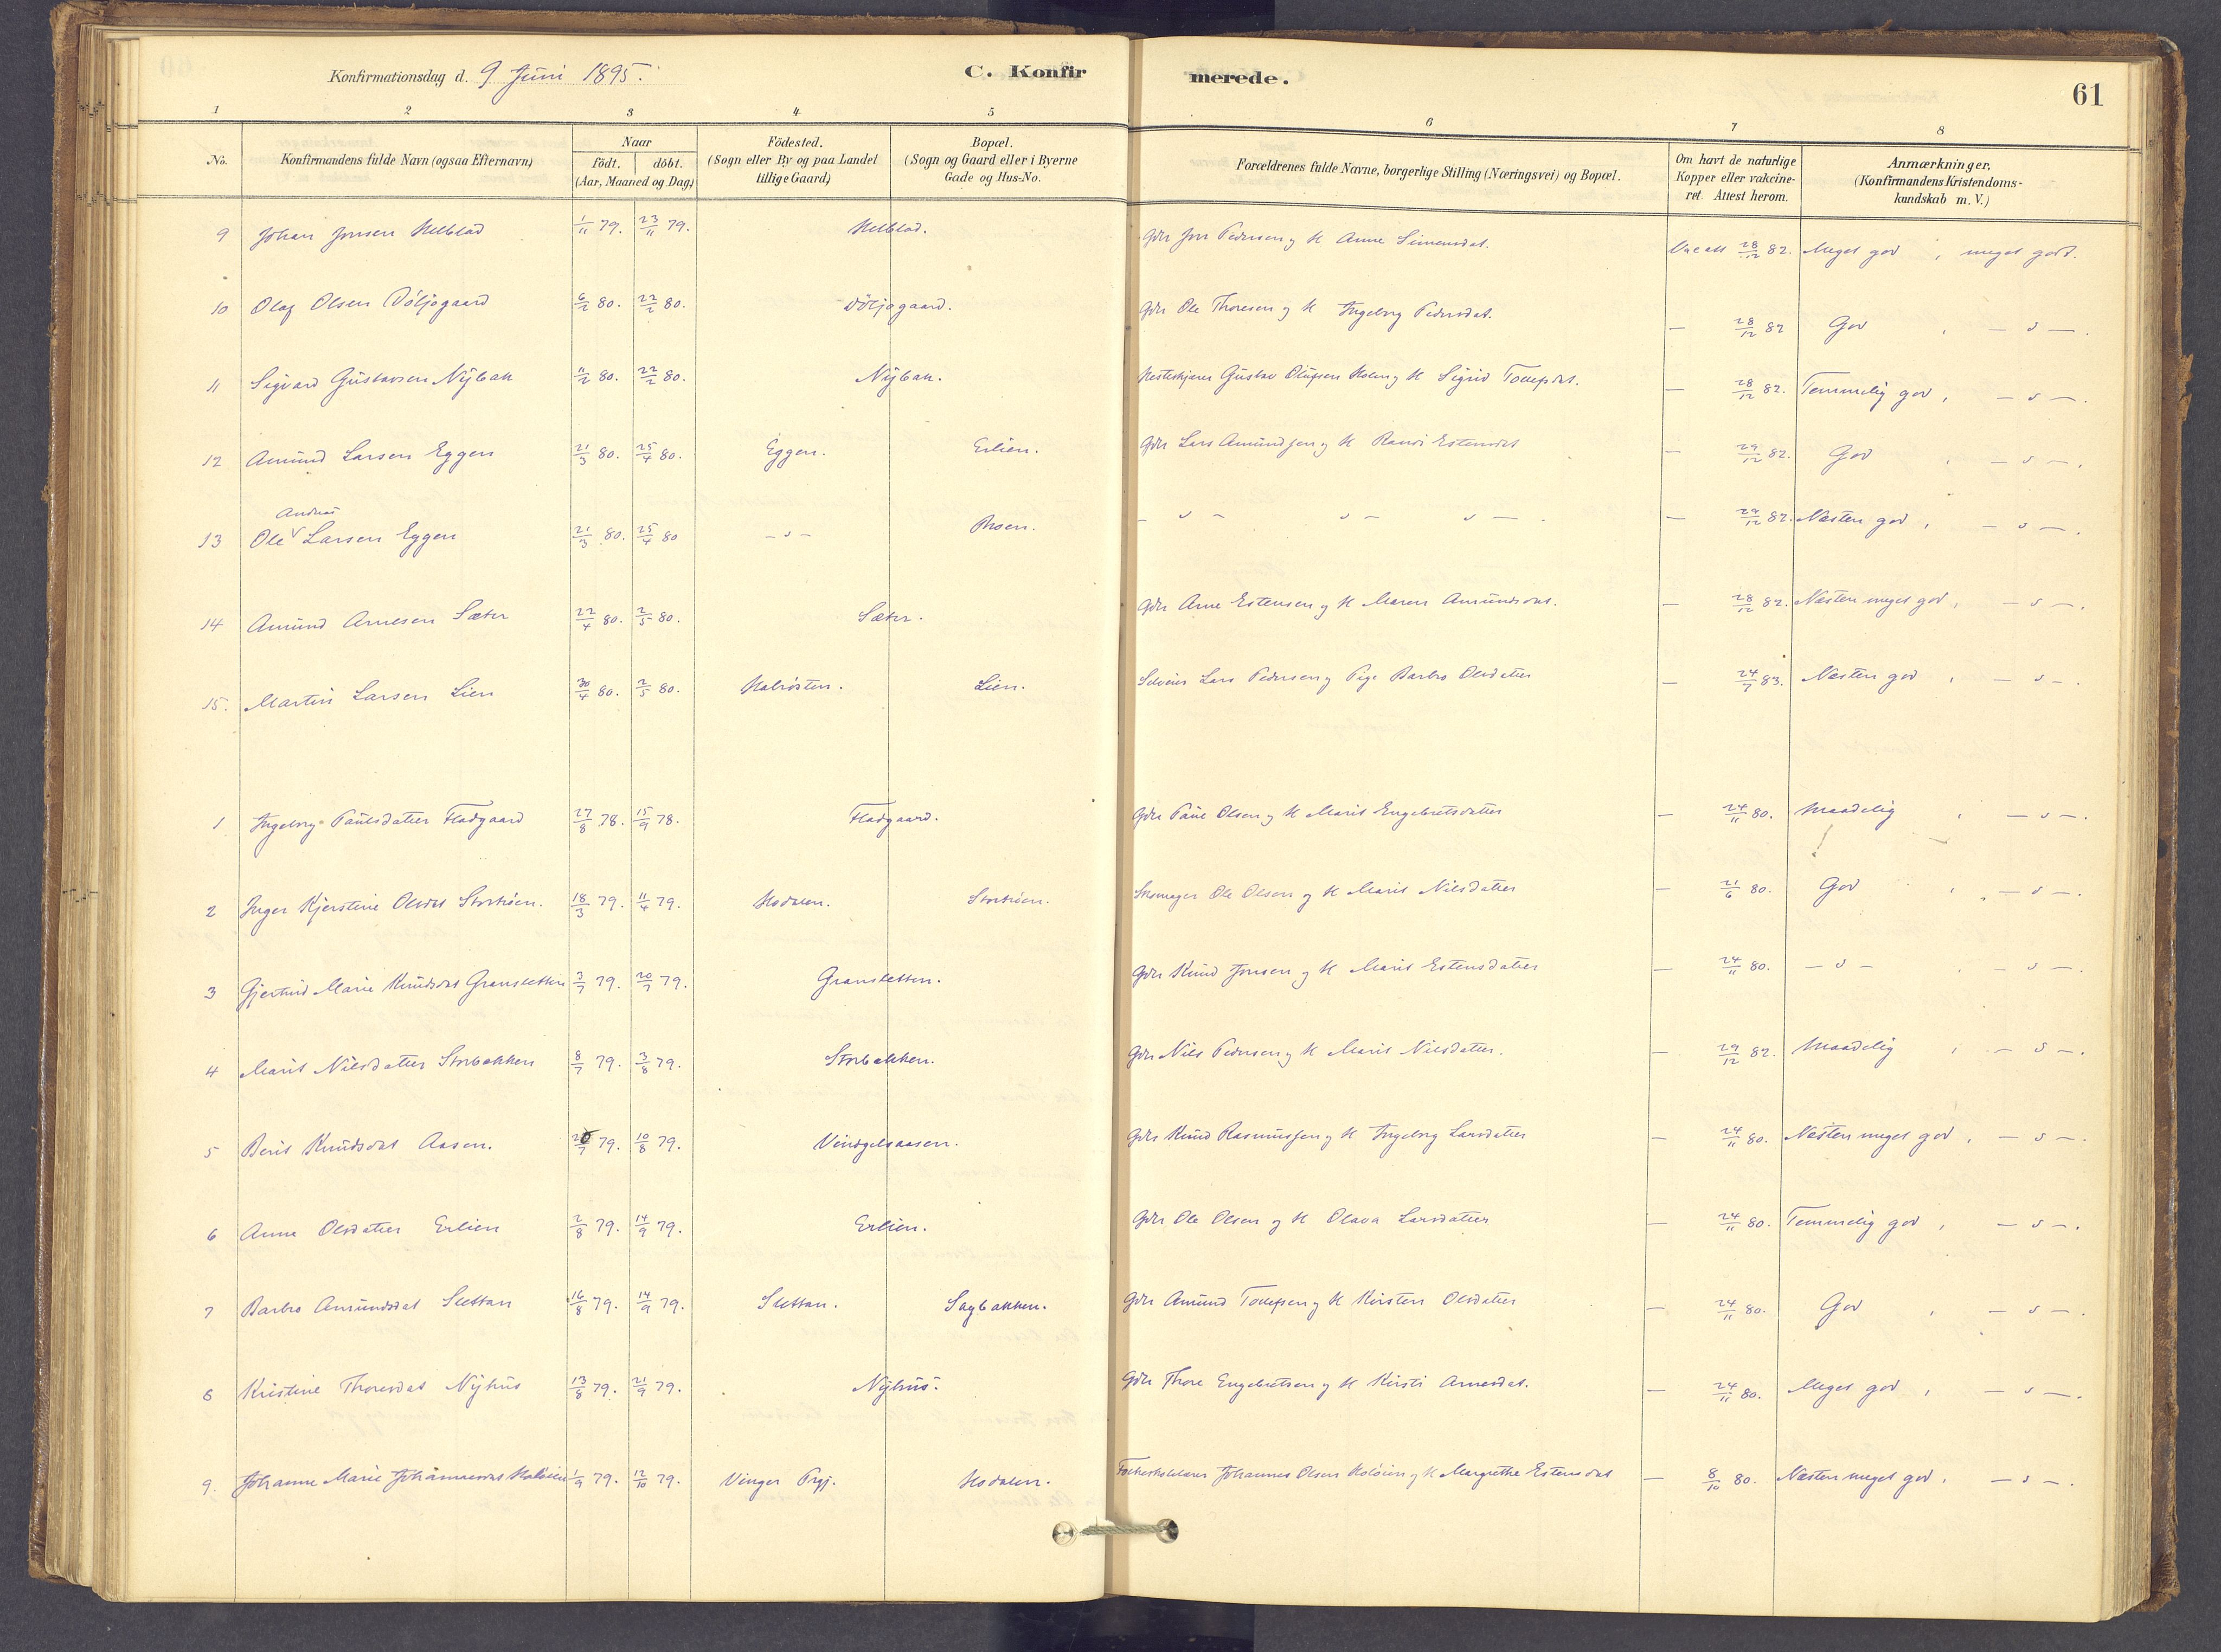 Konfirmationsdag d. 9 Juni 1895.
C. Konfirmerede.
61
1 2 3 4 5 6 7 8
No. Konfirmandens fulde Navn (ogsaa Efternavn) Naar födt. döbt. (Aar, Maaned og Dag) Födested. (Sogn eller By og paa Landet tillige Gaard) Bopæl. (Sogn og Gaard eller i Byerne Gade og Hus-No. Forældrenes fulde Navne, borgerlige Stilling (Næringsvei) og Bopæl. Om havt de naturlige Kopper eller vakcineret. Attest herom. Anmærkninger, (Konfirmandens Kristendomskundskab m. V.)
9 Johan Jonsen 1/11 79. 23/11 79. Gdr Jon Pedersen og H Anne Simensdat. 28/12 82. Meget god, meget godt.
10 Olaf Olsen Döljogaard 6/2 80. 22/2 80. Döljogaard. Gdr Ole Thoresen og H Ingebrg Pedersdat. — 28/12 82 God, — " —.
11 Sigvard Gustavsen Nÿbak 11/2 80. 22/2 80. Nÿbak. Gustav Olufsen og H Sigrid — 28/12 82. Temmelig god, — " —.
12 Amund Larsen Eggen 21/3 80. 25/4 80. Eggen. Erlien. Gdr Lars Amundsen og H Randi Estensdat — 29/12 82. God, — " —.
13 Ole Andreas Larsen Eggen 21/3 80. 25/4 80 — " — Moen. — " — " — " — — 29/12 82. Næsten god, — " —.
14 Amund Arnesen Sæter 22/4 80. 2/5 80. Sæter. Gdr Arne Estensen og H Maren Amundsdat. — 28/12 82. Næsten meget god, — " —.
15. Martin Larsen Lien 30/4 80. 2/5 80. Lien. Selveier Lars Pedersen og Pige Barbro Olsdatter — 24/7 83. Næsten god, — " —.
1 Ingebrg Paulsdatter Fladgaard 27/8 78. 15/9 78. Fladgaard. Gdr Paul Olsen og H Marit Engebretsdatter — 24/11 80. Maadelig, — " —.
2 Inger Kjerstine Olsdat 18/3 79. 11/4 79. Hodalen. Skomager Ole Olsen og H Marit Nilsdatter — 21/6 80. God, — " —.
3 Gjertrud Marie Knudsdat Gransletten 3/7 79. 20/7 79. Gransletten. Gdr Knud Jonsen og H Marit Estensdatter — 24/11 80. — " —, — " —.
4 Marit Nilsdatter Storbakken 8/7 79. 3/8 79. Storbakken. Gdr Nils Pedersen og H Marit Nilsdatter. — 29/12 82. Maadelig, — " —.
5 Berit Knudsdat Aasen. 20/7 79. 10/8 79. Vingelsaasen. Gdr Knud Rasmussen og H Ingebrg Larsdatter — 24/11 80. Næsten meget god, — " —.
6 Anne Olsdatter Erlien 2/8 79. 14/9 79. Erlien. Gdr Ole Olsen og H Olava Larsdatter — 24/11 80. Temmelig god, — " —.
7 Barbro Amundsdat Slettan 16/8 79. 14/9 79. Slettan. Sagbakken. Gdr Amund Tollefsen og H Kirsten Olsdatter — 24/11 80. God, — " —.
8 Kristine Thoresdat Nÿhus 13/8 79. 21/9 79. Nÿhus. Gdr Thore Engebretsen og H Kirsti Arnesdat. — 24/11 80. Meget god, — " —.
9. Johanne Marie Johannesdat Holöien 1/9 79. 12/10 79. Vinger Prgj. Hodalen. Johannes Olsen Holöien og H Margrethe Estensdat — 8/10 80. Næsten meget god, — " —.